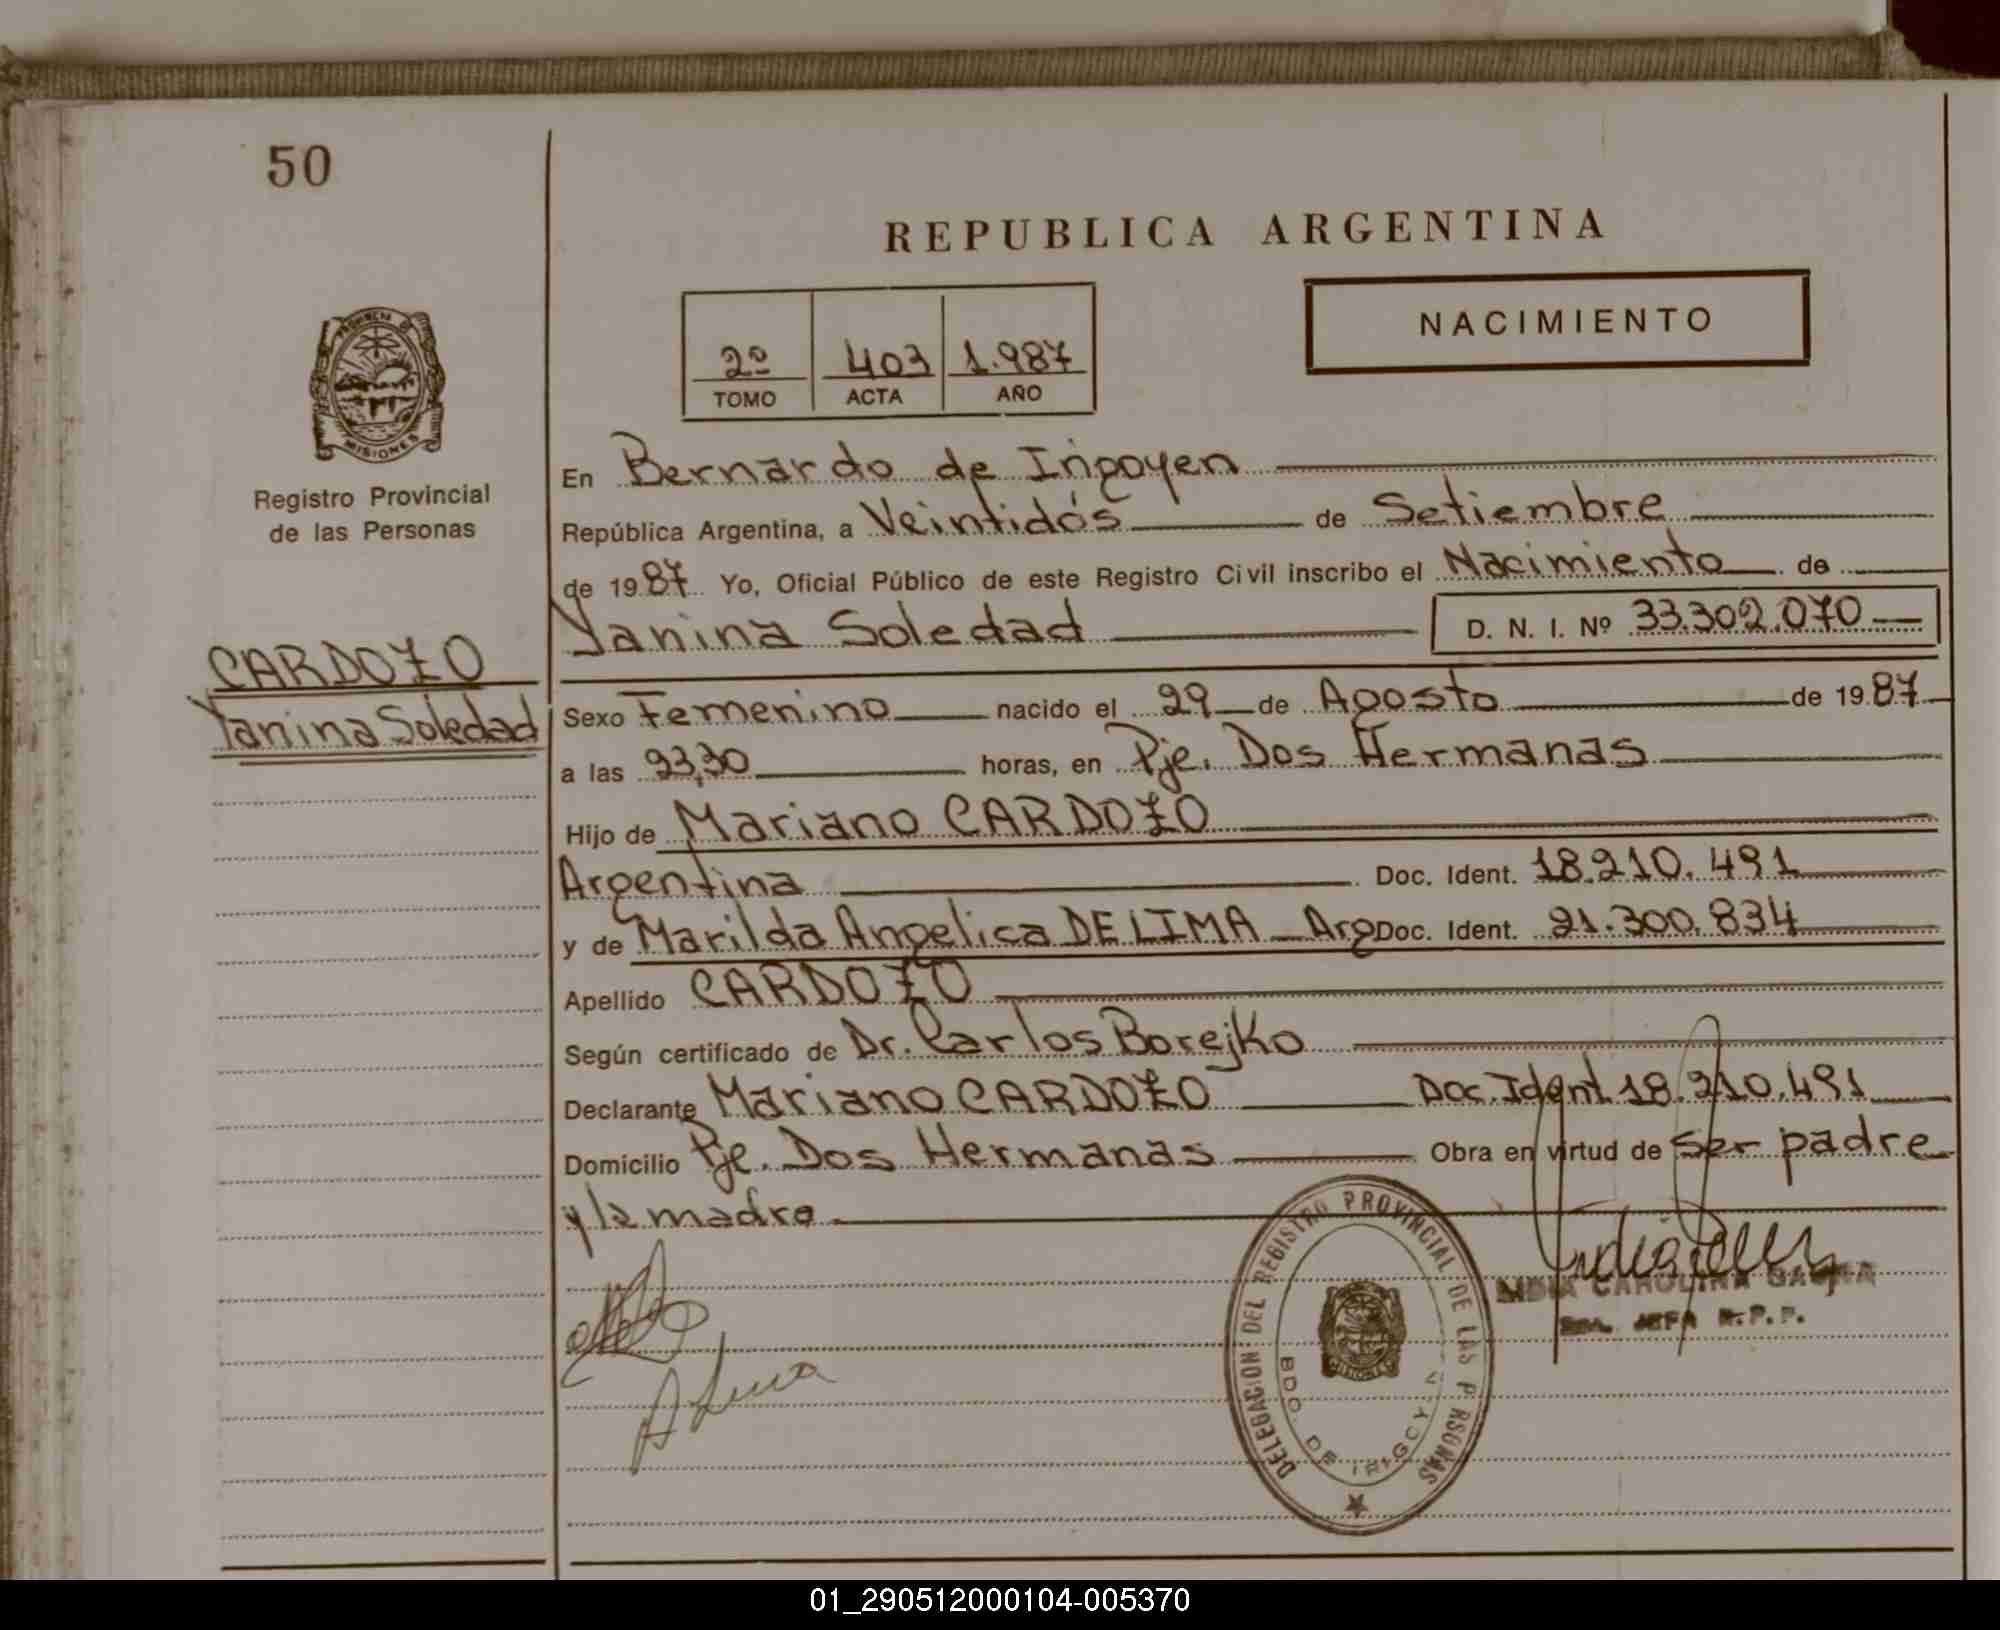 50
REPUBLICA ARGENTINA
NACIMIENTO
2º 403 1.987
TOMO ACTA AÑO
PROVINCIA DE MISIONES
Registro Provincial
de las Personas
CARDOZO
Yanina Soledad
En Bernardo de Irigoyen
República Argentina, a Veintidós de Setiembre
de 1987 Yo, Oficial Público de este Registro Civil inscribo el Nacimiento de
Yanina Soledad D. N. I. Nº 33.302.070
Sexo Femenino nacido el 29 de Agosto de 1987
a las 23,30 horas, en Pje. Dos Hermanas
Hijo de Mariano CARDOZO
Argentina Doc. Ident. 18.210.491
y de Marilda Angelica DE LIMA Arg Doc. Ident. 21.300.834
Apellido CARDOZO
Según certificado de Dr. Carlos Borejko
Declarante Mariano CARDOZO Doc. Ident. 18.210.491
Domicilio Pje. Dos Hermanas Obra en virtud de ser padre
y la madre.
DELEGACION DEL REGISTRO PROVINCIAL DE LAS P RSONAS
BDO. DE IRIGOYEN
MISIONES
LIDIA CAROLINA
JEFA R.P.P.
01_290512000104-005370